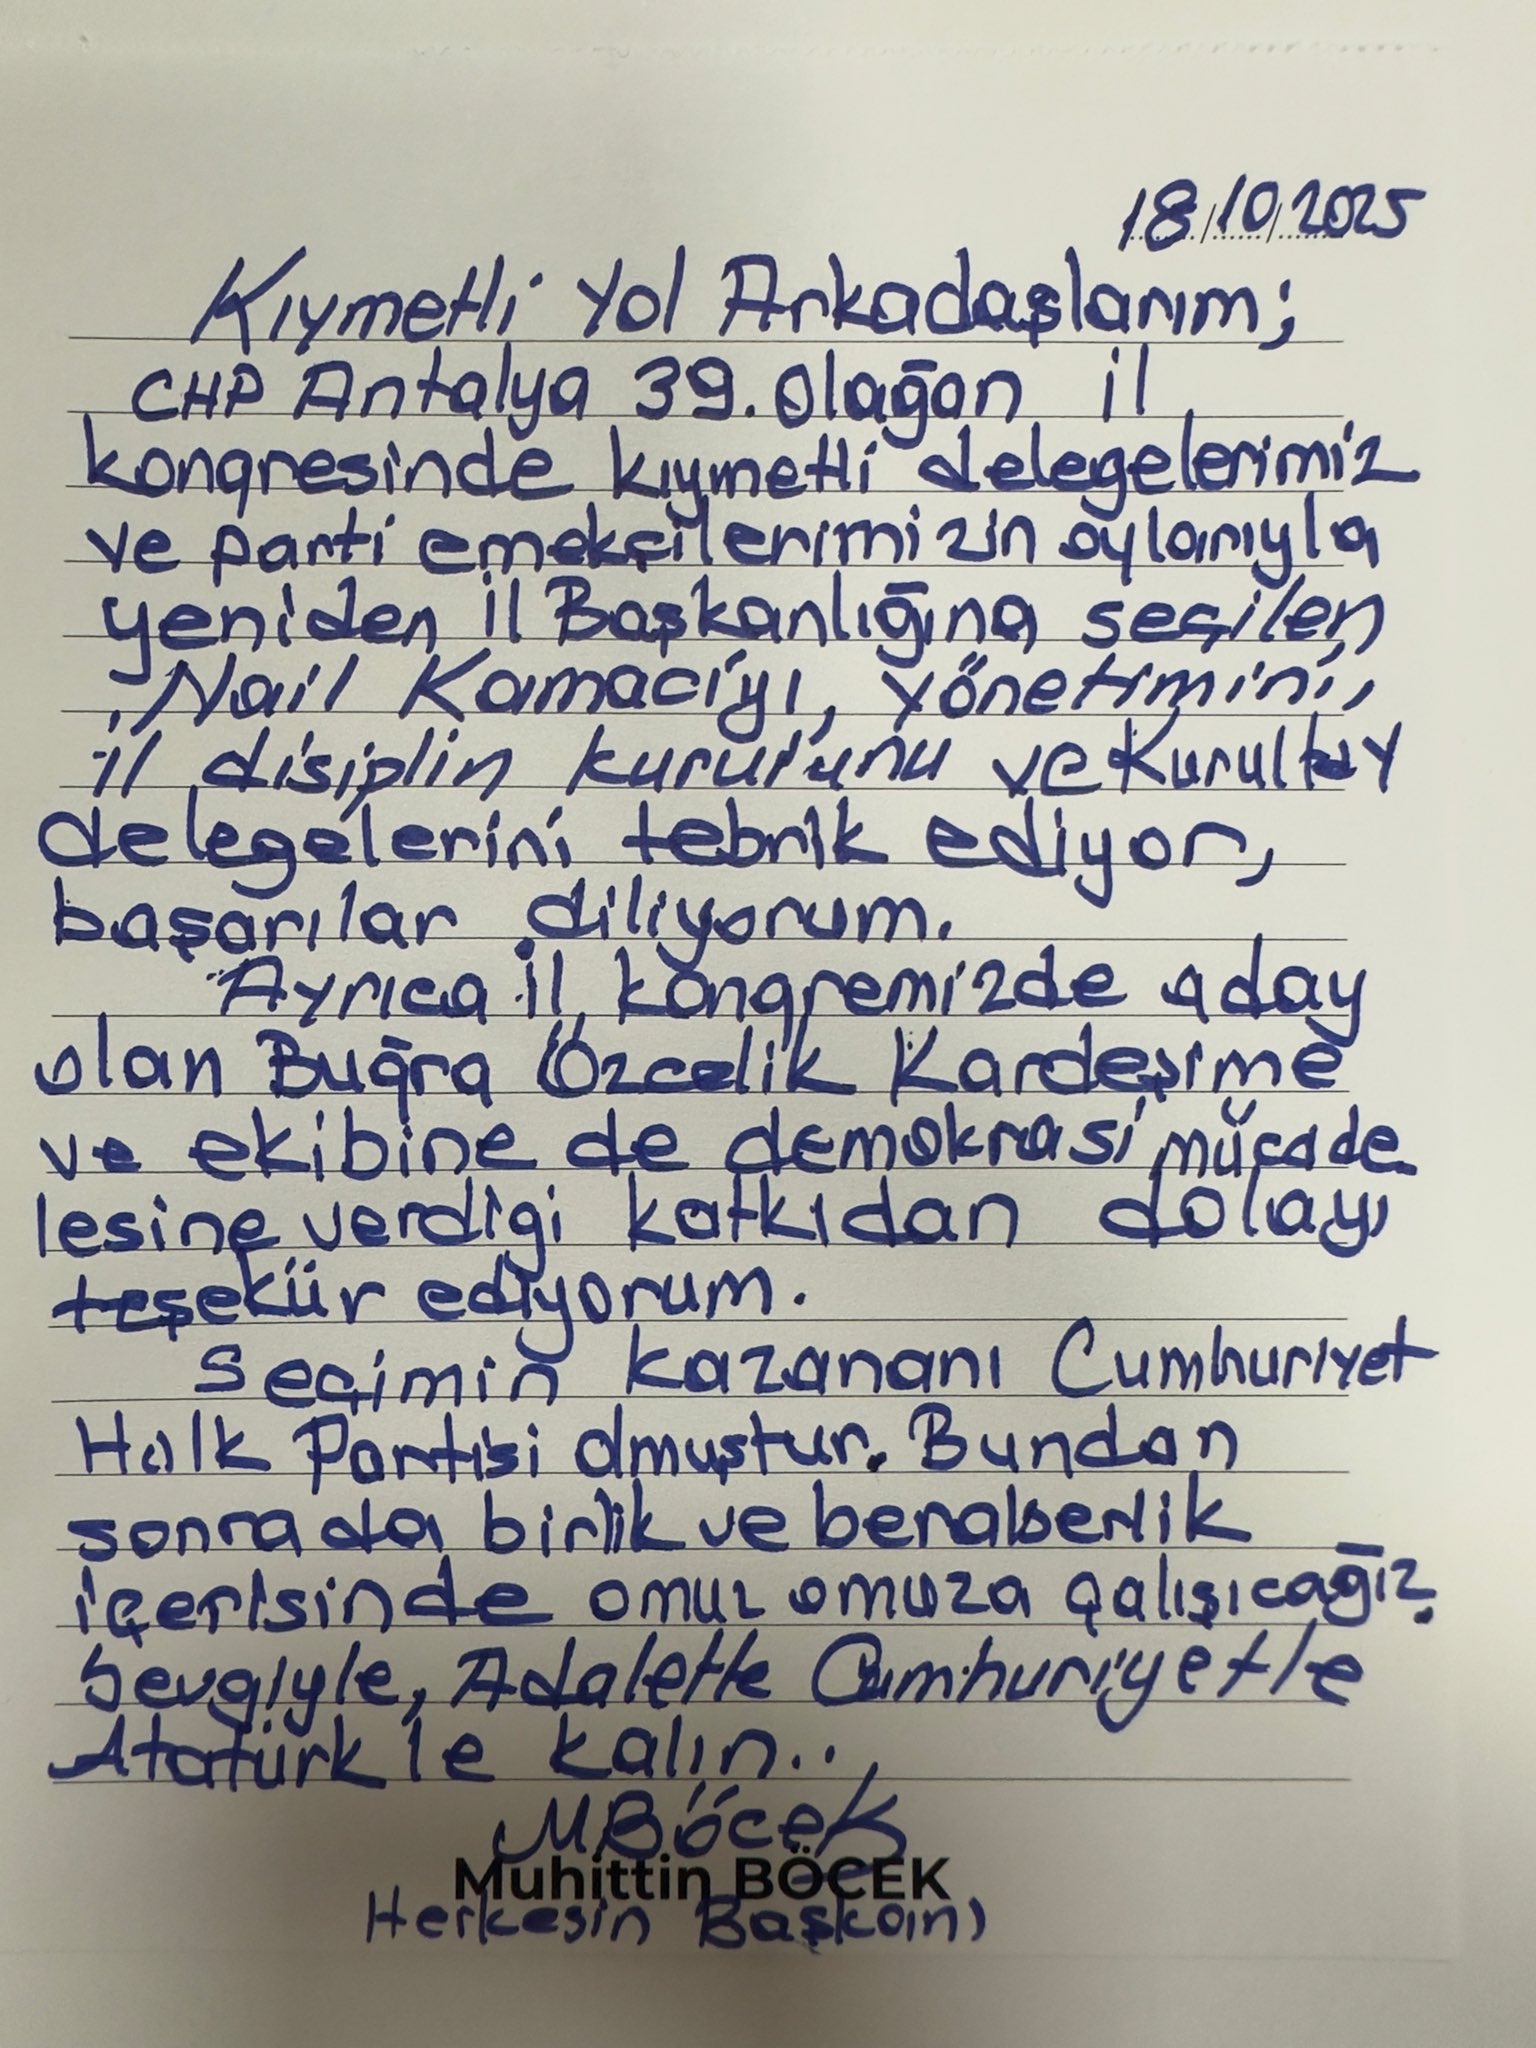 18/10/2025
Kıymetli Yol Arkadaşlarım;
CHP Antalya 39. Olağan il
kongresinde kıymetli delegelerimiz
ve parti emekçilerimizin oylarıyla
yeniden il Başkanlığına seçilen
Nail Kamacı'yı, Yönetimini,
il disiplin kurulunu ve Kurultay
delegelerini tebrik ediyor,
başarılar diliyorum.
Ayrıca il kongremizde aday
olan Buğra Özçelik Kardeşime
ve ekibine de demokrasi mücade
lesine verdiği katkıdan dolayı
teşekür ediyorum.
Seçimin kazananı Cumhuriyet
Halk Partisi olmuştur. Bundan
sonrada birlik ve beraberlik
içerisinde omuz omuza çalışıcağız.
Sevgiyle, Adaletle Cumhuriyetle
Atatürk'le kalın..
MBöcek
Muhittin BÖCEK
Herkesin Başkanı